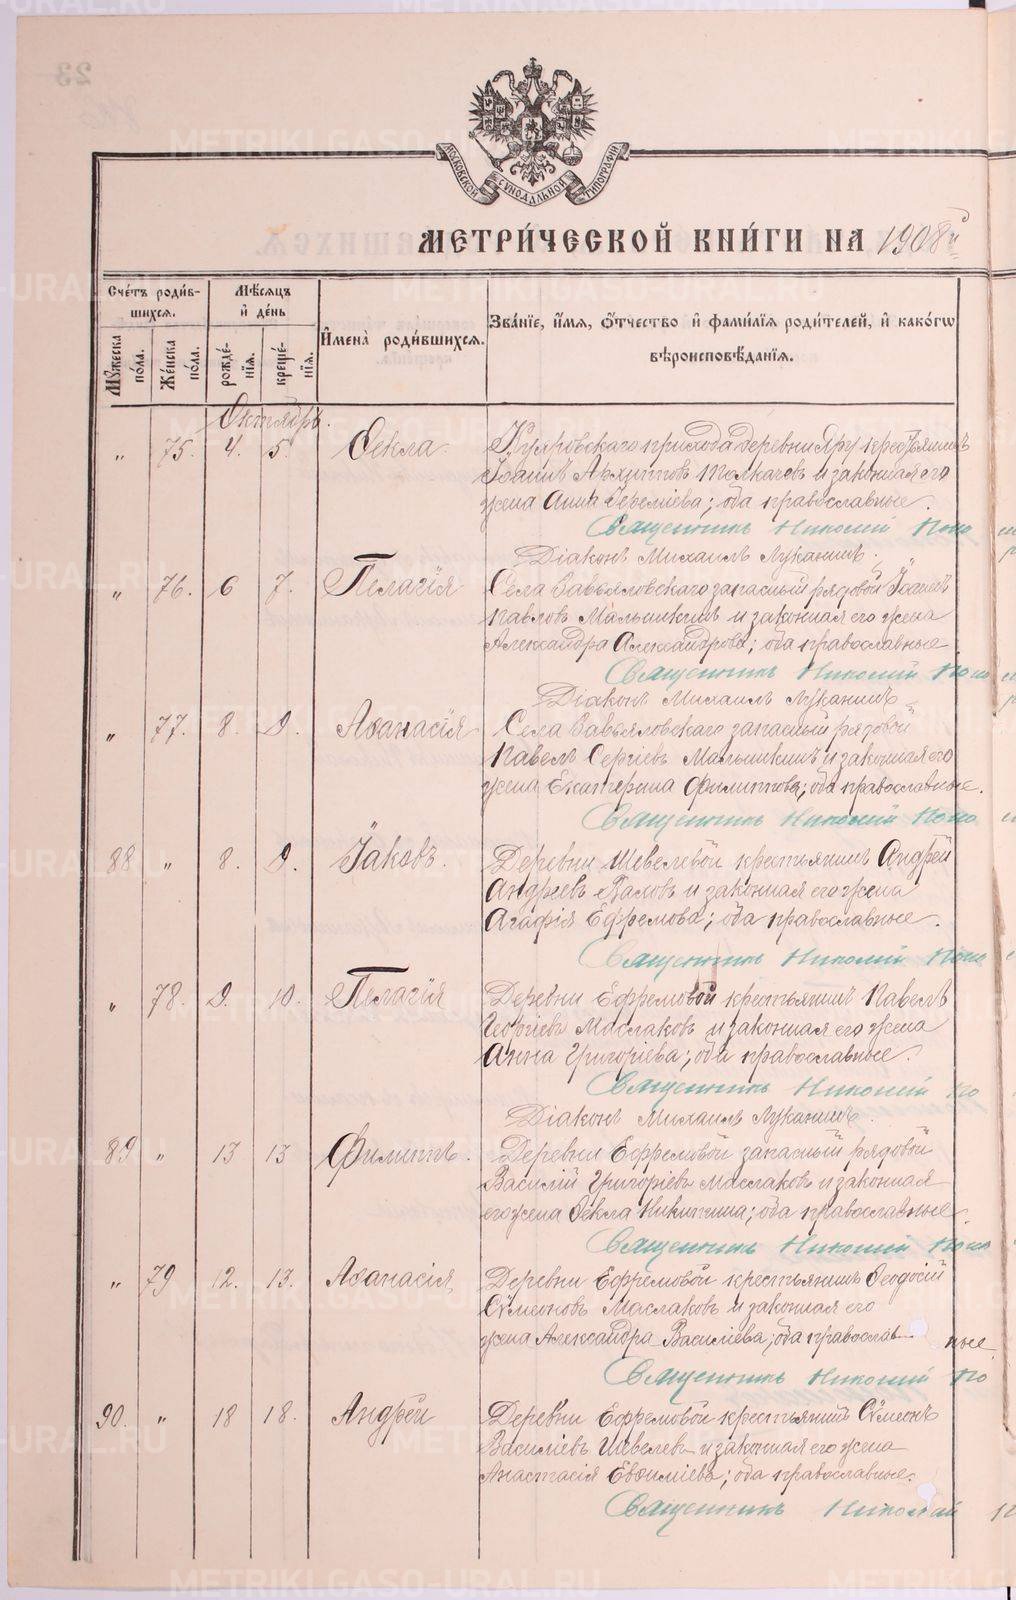 МОСКОВСКОЙ СѴНОДАЛЬНОЙ ТИПОГРАФІИ
МЕТРИ́ЧЕСКОЙ КНИ́ГИ НА 1908й г
Сче́тъ роди́вшихсѧ.
Мѣ́сѧцъ и де́нь
И҆мена̀ роди́вшихсѧ.
Зва́нїе, и҆́мѧ, ѻ҆́тчество и҆ фами́лїѧ роди́телей, и҆ како́гѡ вѣроисповѣ́данїѧ.
Мꙋ́жеска по́ла.
Же́нска по́ла.
рожде́нїѧ.
креще́нїѧ.
Октябрь.
„ 75. 4. 5. Ѳекла
Куяровскаго прихода деревни Яру крестьянинъ
Іоаннъ Архиповъ Толкачевъ и законная его
жена Анна Іереміева; оба православные.
Священникъ Николай Попо
Діаконъ Михаилъ Луканинъ.
„ 76. 6 7. Пелагія
Села Завьяловскаго запасный рядовой Іоаннъ
Павловъ Малышкинъ и законная его жена
Александра Александрова; оба православные
Священникъ Николай Попо
Діаконъ Михаилъ Луканинъ
„ 77. 8. 9. Аѳанасія
Села Завьяловскаго запасный рядовой
Павелъ Сергіевъ Малышкинъ и законная его
жена Екатерина Филиппова; оба православные.
Священникъ Николай Попо
88 „ 8. 9. Іаковъ.
Деревни Шевелевой крестьянинъ Андрей
Андреевъ и законная его жена
Агафія Ефремова; оба православные.
Священникъ Николай Попо
„ 78. 9. 10. Пелагія
Деревни Ефремовой крестьянинъ Павелъ
Георгіевъ Маслаковъ и законная его жена
Анна Григоріева; оба православные.
Священникъ Николай По
Діаконъ Михаилъ Луканинъ.
89 „ 13 13 Филиппъ.
Деревни Ефремовой запасный рядовой
Василій Григоріевъ Маслаковъ и законная
его жена Ѳекла Никитина; оба православные.
Священникъ Николай Попо
„ 79 12. 13. Аѳанасія
Деревни Ефремовой крестьянинъ Ѳеодосій
Сѵмеоновъ Маслаковъ и законная его
жена Александра Василіева; оба православные
Священникъ Николай По
90. „ 18 18. Андрей
Деревни Ефремовой крестьянинъ Сѵмеонъ
Василіевъ Шевелевъ и законная его жена
Анастасія Евѳиміева; оба православные.
Священникъ Николай П
METRIKI.GASO-URAL.RU